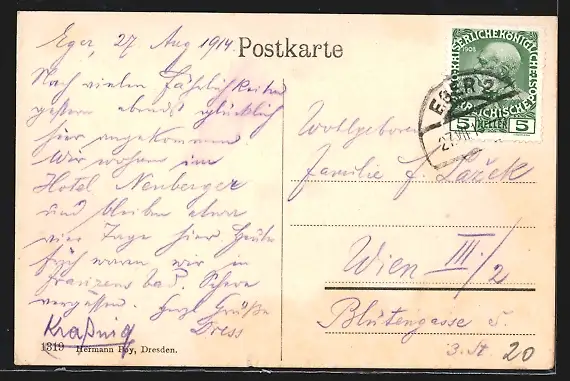 Eger, 27 Aug 1914.
Postkarte
Nach vielen Fährlichkeiten
gestern abend glücklich
hier angekommen.
Wir wohnen im
Hotel Neuberger
und bleiben etwa
vier Tage hier. Heute
früh waren wir in
Franzensbad. Schwer
vergessen. Herzl Grüße
Kraßnig
1319 Hermann Poy, Dresden.
KAISERLICHE KÖNIGLICHE
1908
ÖSTERREICHISCHE
5 HELLER 5
EGER 2
Wohlgeboren
Familie J. Laček
Wien III/2
Blütengasse 5.
3. St.
20